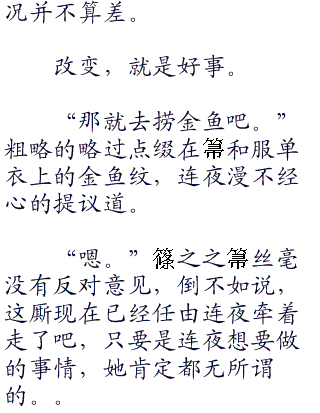 况并不算差。
改变，就是好事。
“那就去捞金鱼吧。”
粗略的略过点缀在箒和服单
衣上的金鱼纹，连夜漫不经
心的提议道。
“嗯。”篠之之箒丝毫
没有反对意见，倒不如说，
这厮现在已经任由连夜牵着
走了吧，只要是连夜想要做
的事情，她肯定都无所谓
的。。